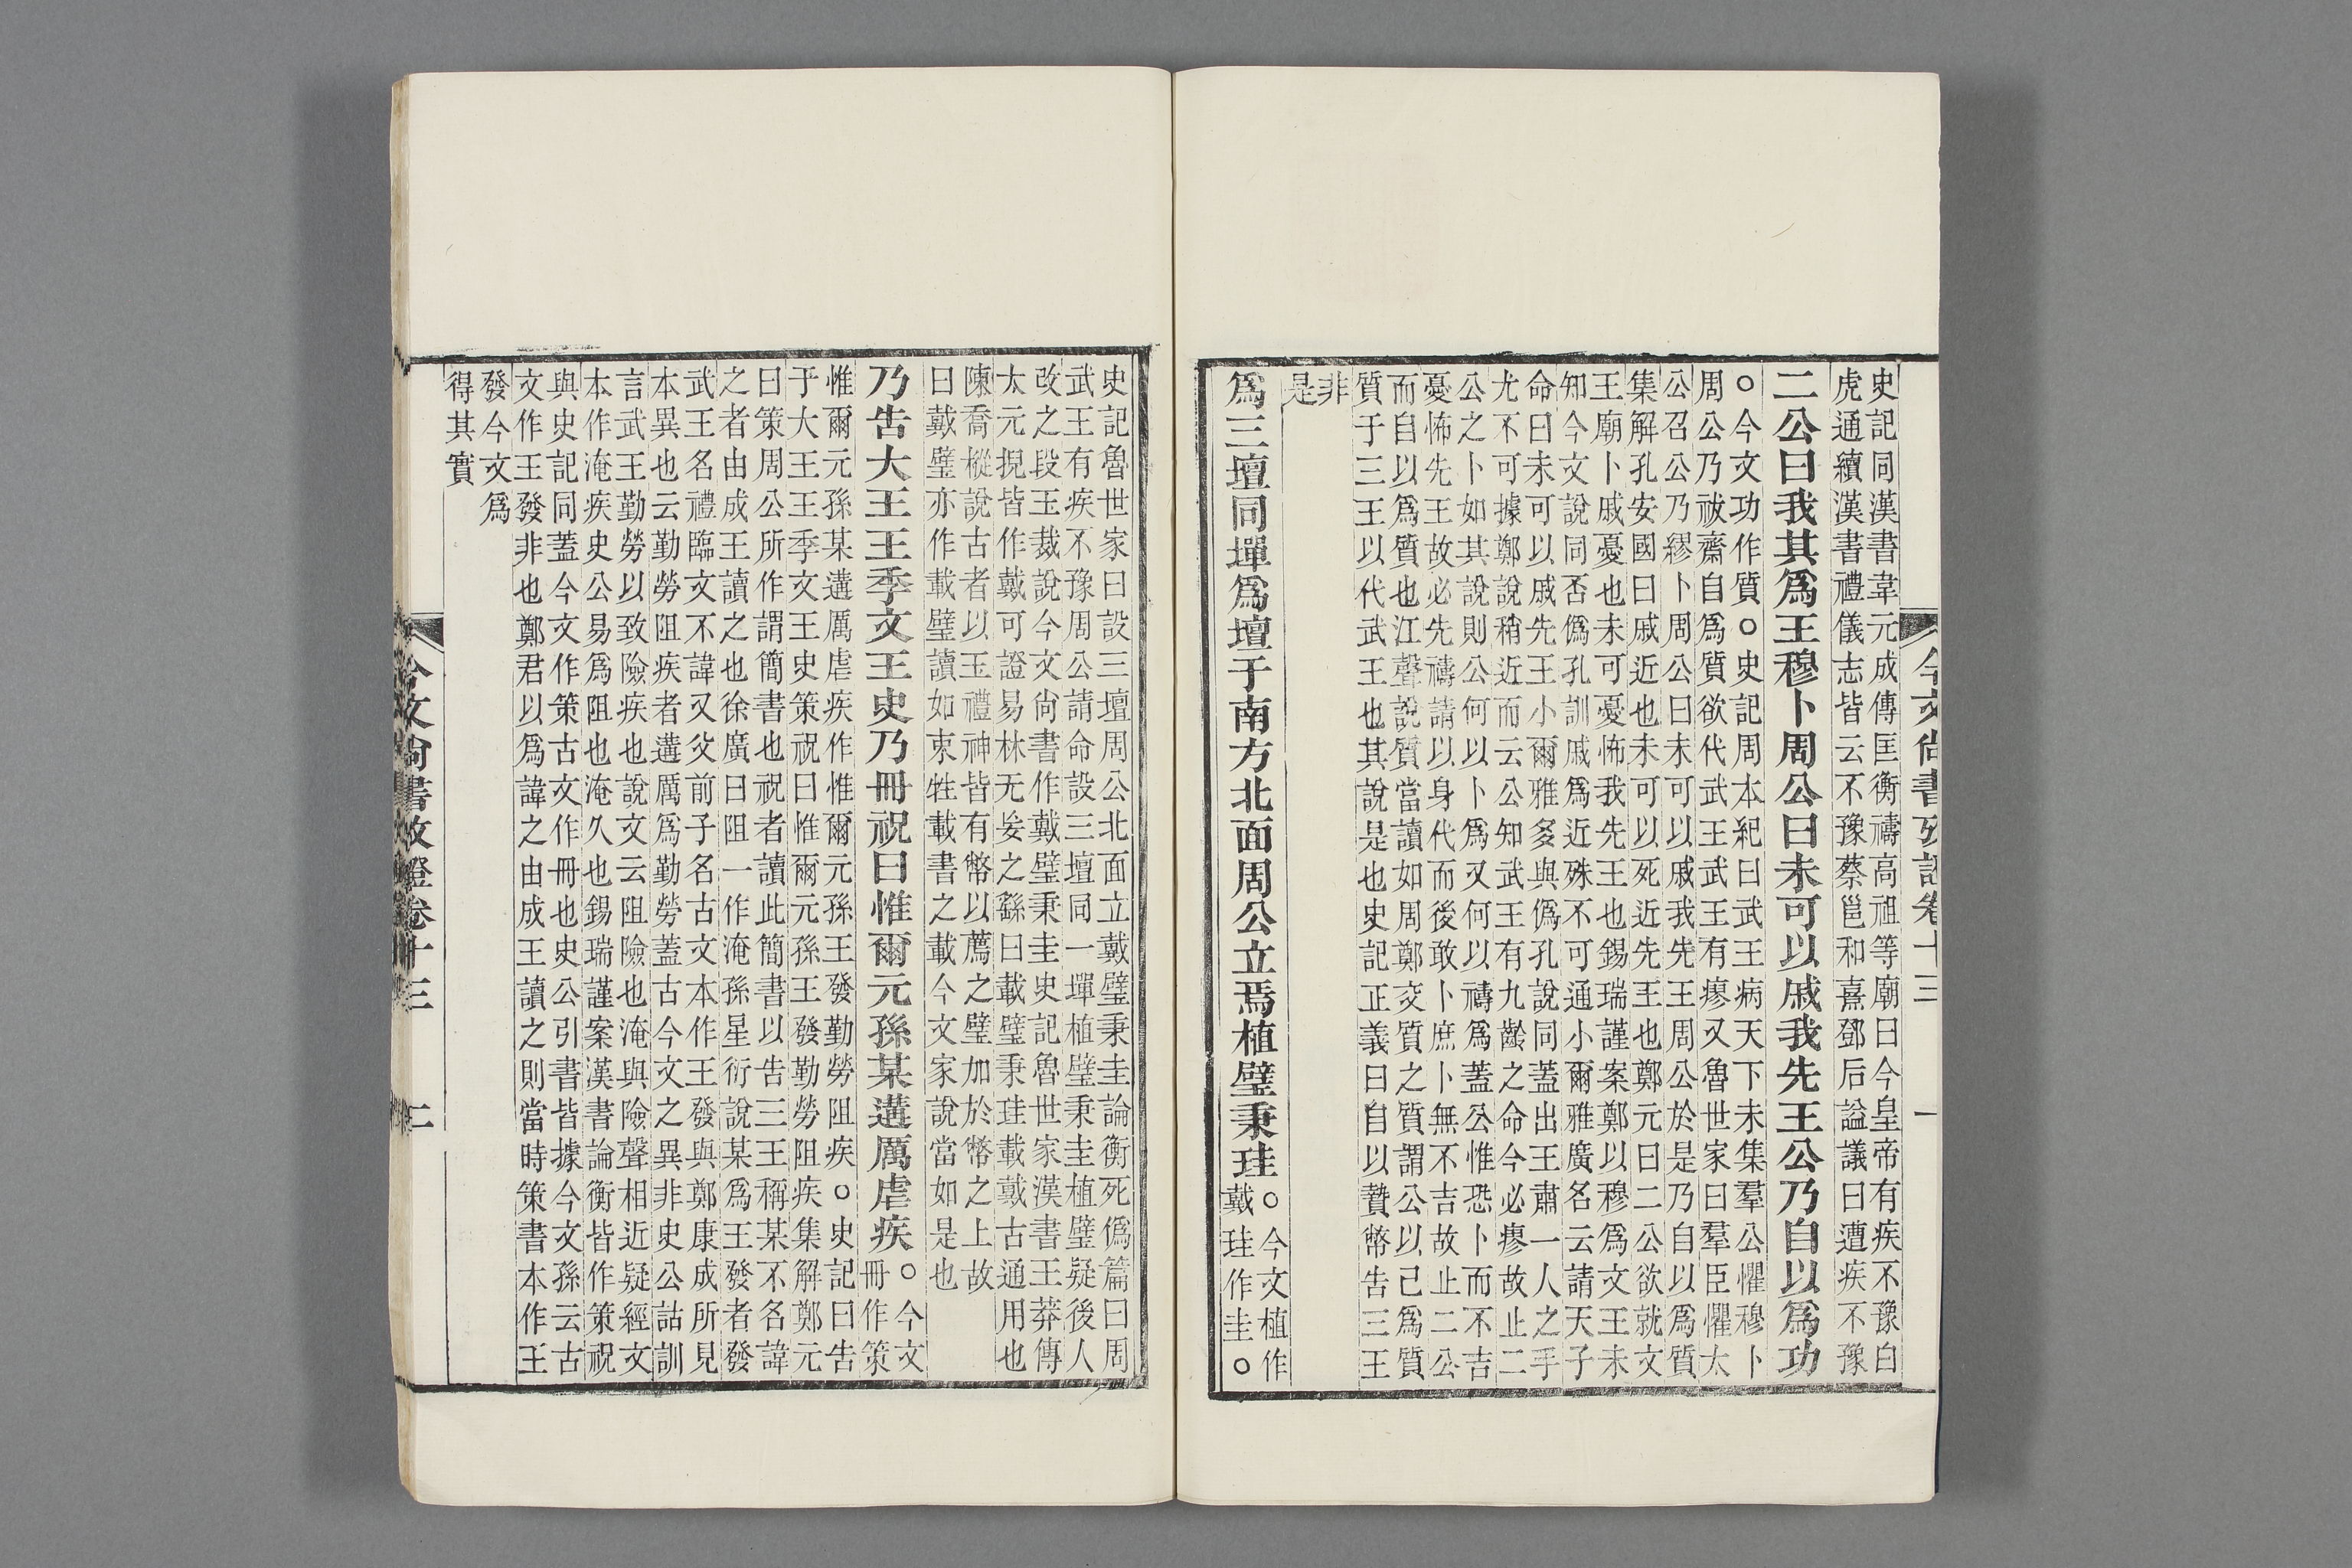 史記同漢書韋元成傳匡衡禱高祖等廟曰今皇帝有疾不豫白
虎通續漢書禮儀志皆云不豫蔡邕和熹鄧后謚議曰遭疾不豫
二公曰我其爲王穆卜周公曰未可以戚我先王公乃自以爲功
○今文功作質○史記周本紀曰武王病天下未集羣公懼穆卜
周公乃祓齋自爲質欲代武王武王有瘳又魯世家曰羣臣懼太
公召公乃繆卜周公曰未可以戚我先王周公於是乃自以爲質
集解孔安國曰戚近也未可以死近先王也鄭元曰二公欲就文
王廟卜戚憂也未可憂怖我先王也錫瑞謹案鄭以穆爲文王未
知今文說同否僞孔訓戚爲近殊不可通小爾雅廣名云請天子
命曰未可以戚先王小爾雅多與僞孔說同蓋出王肅一人之手
尤不可據鄭說稍近而云公知武王有九齡之命今必瘳故止二
公之卜如其說則公何以卜爲又何以禱爲蓋公惟恐卜而不吉
憂怖先王故必先禱請以身代而後敢卜庶卜無不吉故止二公
而自以爲質也江聲說質當讀如周鄭交質之質謂公以己爲質
質于三王以代武王也其說是也史記正義曰自以贄幣告三王
非
是
爲三壇同墠爲壇于南方北面周公立焉植璧秉珪○今文植作
戴珪作圭○
今文尙書攷證卷十三
一
史記魯世家曰設三壇周公北面立戴璧秉圭論衡死僞篇曰周
武王有疾不豫周公請命設三壇同一墠植璧秉圭植璧疑後人
改之段玉裁說今文尙書作戴璧秉圭史記魯世家漢書王莽傳
太元掜皆作戴可證易林无妄之繇曰載璧秉珪載戴古通用也
陳喬樅說古者以玉禮神皆有幣以薦之璧加於幣之上故
曰戴璧亦作載璧讀如束牲載書之載今文家說當如是也
乃告大王王季文王史乃冊祝曰惟爾元孫某遘厲虐疾○今文
冊作策
惟爾元孫某遘厲虐疾作惟爾元孫王發勤勞阻疾○史記曰告
于大王王季文王史策祝曰惟爾元孫王發勤勞阻疾集解鄭元
曰策周公所作謂簡書也祝者讀此簡書以告三王稱某不名諱
之者由成王讀之也徐廣曰阻一作淹孫星衍說某爲王發者發
武王名禮臨文不諱又父前子名古文本作王發與鄭康成所見
本異也云勤勞阻疾者遘厲爲勤勞蓋古今文之異非史公詁訓
言武王勤勞以致險疾也說文云阻險也淹與險聲相近疑經文
本作淹疾史公易爲阻也淹久也錫瑞謹案漢書論衡皆作策祝
與史記同蓋今文作策古文作冊也史公引書皆據今文孫云古
文作王發非也鄭君以爲諱之由成王讀之則當時策書本作王
發今文爲
得其實
今文尙書攷證卷十三
二